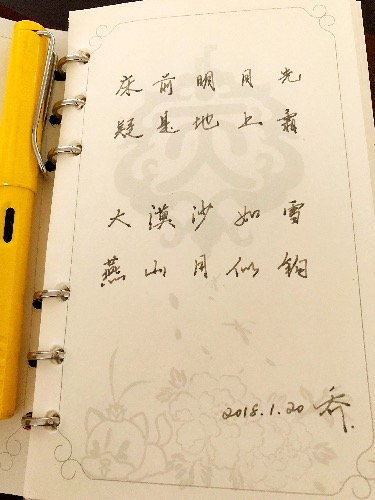 床前明月光
疑是地上霜
大漠沙如雪
燕山月似钩
2018.1.20 乔